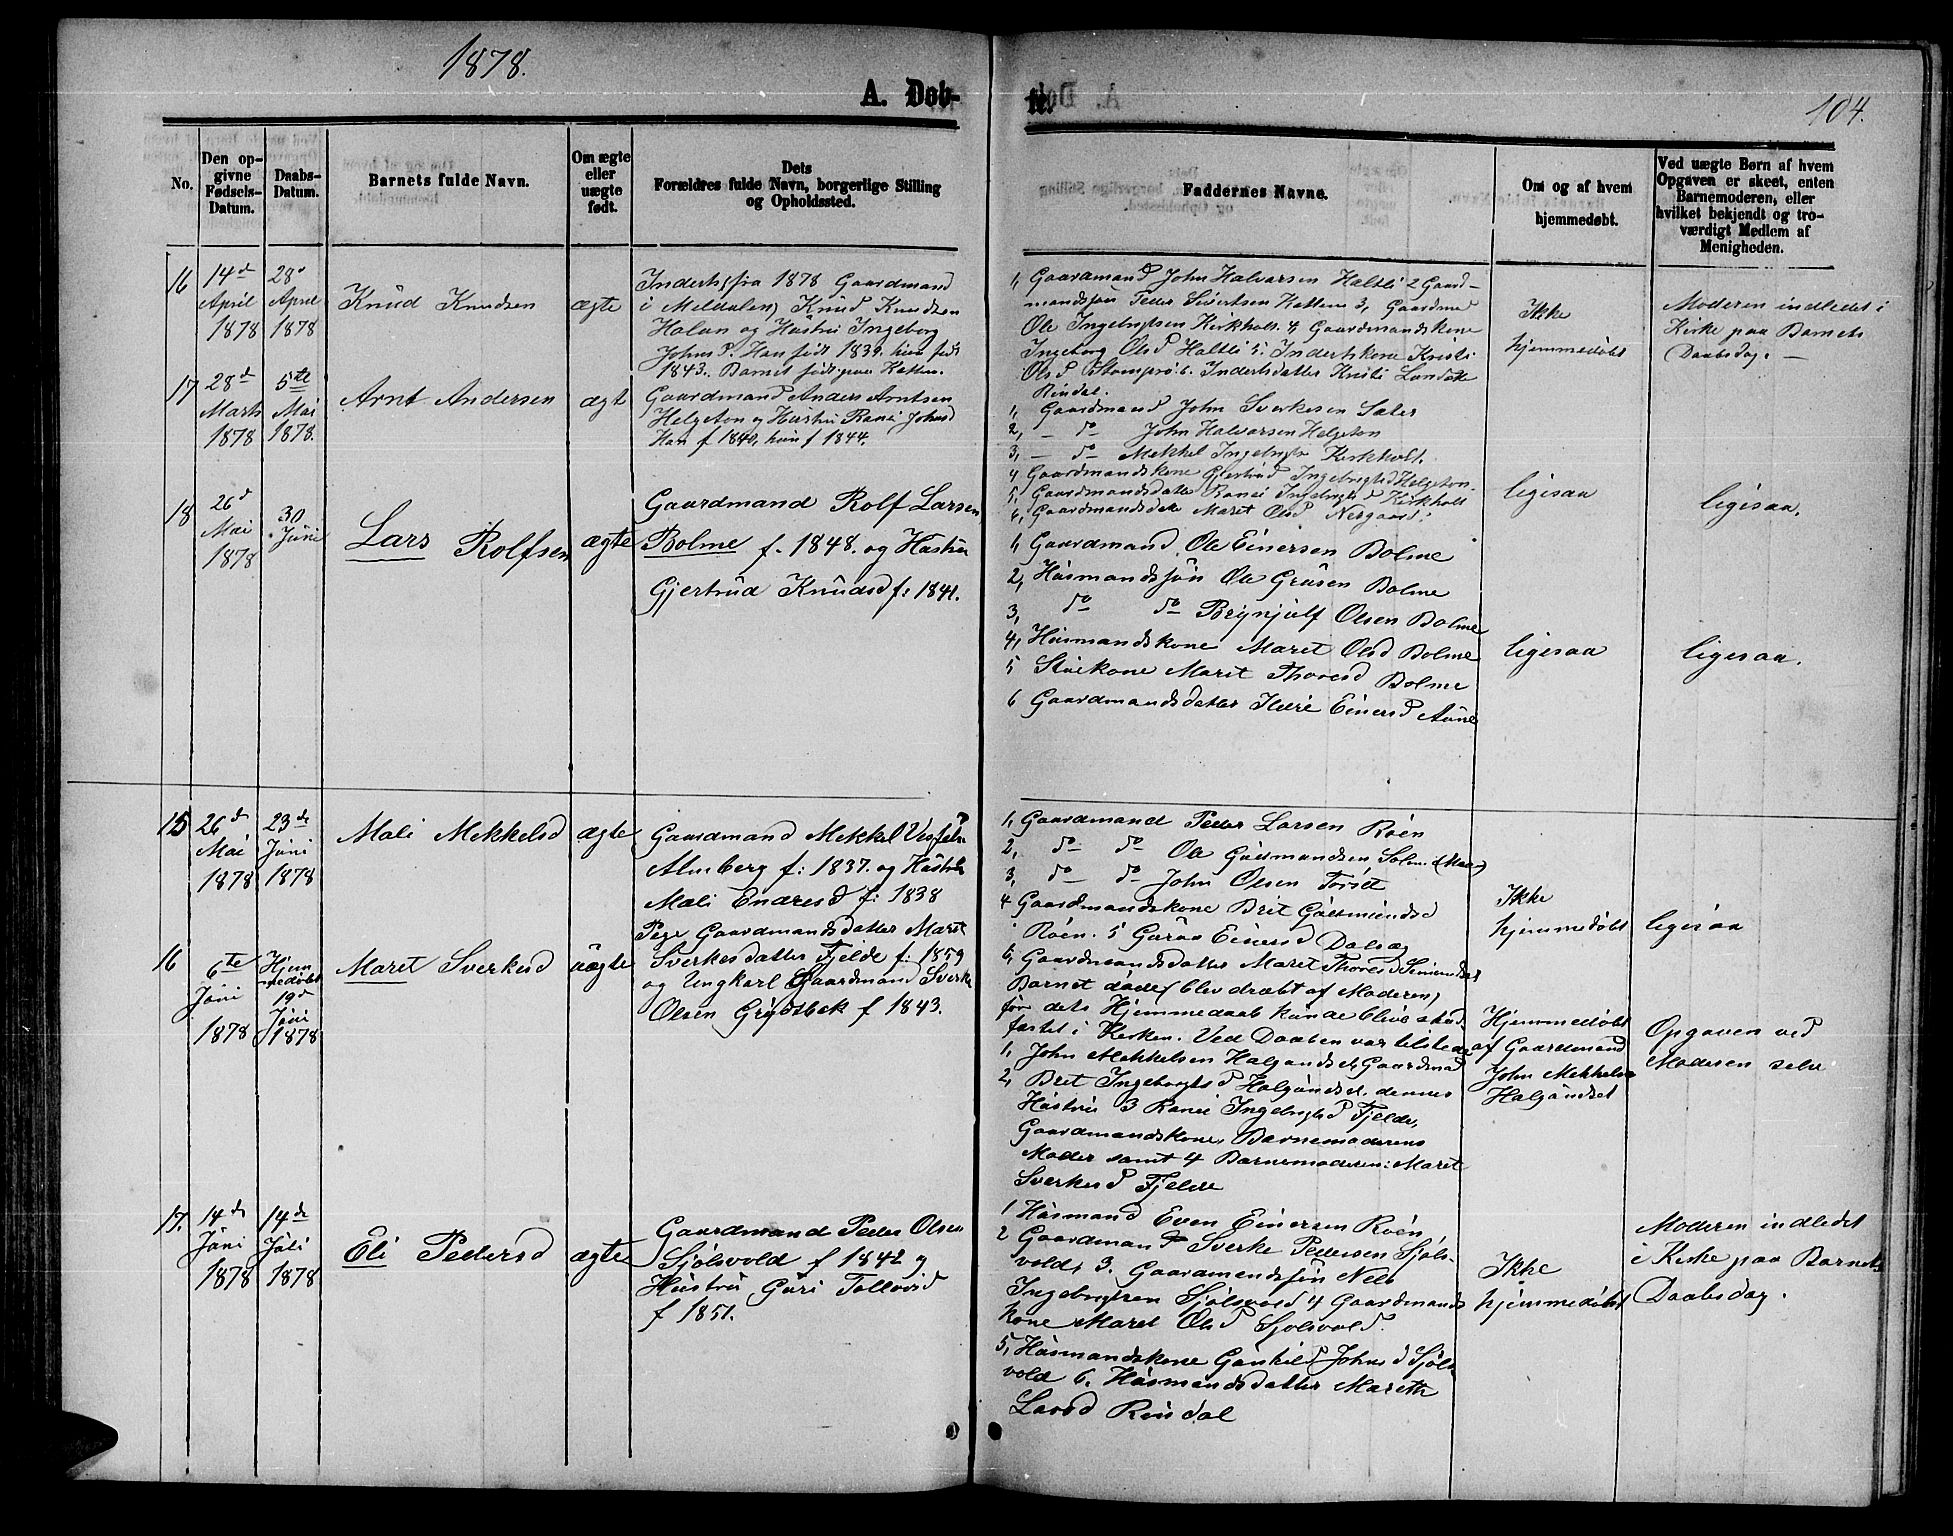 1878.
A. Døb-
te.
104.
No.
Den op-
givne
Fødsels-
Datum.
Daabs-
Datum.
Barnets fulde Navn.
Om ægte
eller
uægte
født.
Dets
Forældres fulde Navn, borgerlige Stilling
og Opholdssted.
Faddernes Navne.
Om og af hvem
hjemmedøbt.
Ved uægte Børn af hvem
Opgaven er skeet, enten
Barnemoderen, eller
hvilket bekjendt og tro-
værdigt Medlem af
Menigheden.
16
14d
April
1878
28d
April
1878
Knud Knudsen
ægte
Inderts, fra 1878 Gaardmand
i Meldalen, Knud Knudsen
Halan og Hustru Ingeborg
Johnsd. Han født 1839. hun født
1843. Barnet født paa
1, Gaardmand John Halvarsen Haltli 2 Gaard-
mandssøn Peder Sivertsen 3, Gaardmd
Ole Ingebrigtsen Kirkholt 4 Gaardmandskone
Ingeborg Olsd Haltli 5. Indertskone Kristi
Olsd Stomprø 6. Indertsdatter Kristi
Rindal.
Ikke
hjemmedøbt
Moderen indledet i
Kirke paa Barnets
Daabsdag. —
17
28d
Marts
1878
5te
Mai
1878.
Arnt Andersen
ægt
Gaardmand Anders Arntsen
Helgeton og Hustru Ranei Johnsd
Han f 1840, hun f 1844.
1, Gaardmand John Sverkesen Sæter
2, — do John Halvarsen Helgeton
3, — do Mekkel Ingebrigts Kirkholt.
4 Gaardmandskone Gjertrud Ingebrigtsd Helgeton
5, Gaardmandsdatter Ranei Ingebrigtsd Kirkholt
6, Gaardmandsdatt Maret Olsd Nergaard.
ligesaa
ligesaa.
18
26d
Mai
1878
30
Juni
Lars Rolfsen
ægte
Gaardmand Rolf Larsen
Bolme f. 1848. og Hustru
Gjertrud Knudsd f: 1841.
1, Gaardmand Ole Einersen Bolme
2, Husmandssøn Ole Bolme
3, do do Brynjulf Olsen Bolme
4, Husmandskone Maret Olsd Bolme
5 Maret Thoresd Bolme
6 Gaardmandsdatter Einersd Aune
ligesaa
ligesaa.
15
26d
Mai
1878
23de
Juni
1878
Mali Mekkelsd
ægte
Gaardmand Mekkel
Almberg f: 1837. og Hustru
Mali Endresd f: 1838
1, Gaardmand Peder Larsen Roen
2, do do Ole Gudmundsen
3, do do John Olsen
4 Gaardmandskone Brit Gudmundsd
Roen. 5 Guru Einersd
6, Gaardmandsdatter Maret Thoresd
Ikke
hjemmedøbt
ligesaa
16
6te
Juni
1878
Hjem
medøbt
19d
Juni
1878
Maret Sverkesd
uægte
Pige Gaardmandsdatter Maret
Sverkesdatter Fjelde f: 1859
og Ungkarl Gaardmand Sverke
Olsen Grytbak f 1843.
Barnet døde (blev dræbt af Moderen)
før dets Hjemmedaab kunde blive stad-
fæstet i Kirken. Ved Daaben var tilstede
1, John Mekkelsen Halgundset, Gaardmand
2, Brit Ingebrigtsd Halgundset, dennes
Hustru 3 Ranei Ingebrigtsd Fjelde,
Gaardmandskone, Barnemoderens
Moder samt 4 Barnemoderen: Maret
Sverkesd Fjelde
Hjemmedøbt
af Gaardmand
John Mekkelsen
Halgundset
Opgaven ved
Moderen selv
17.
14de
Juni
1878
14de
Juli
1878
Eli Pedersd
ægte
Gaardmand Peder Olsen
Sjølsvold f 1842 og
Hustru Guri Tollevsd
f 1851.
1 Husmand Even Einersen Roen
2 Gaardmand Sverke Pedersen Sjøls-
vold, 3. Gaardmandssøn Nels
Ingebrigtsen Sjølsvold 4 Gaardmands
kone Maret Olsd Sjølsvold.
5, Husmandskone Gunhild Johnsd Sjøls
vold 6. Husmandsdatter Mareth
Larsd Rindal
Ikke
hjemmedøbt
Moderen indledet
i Kirke paa Barnets
Daabsdag.